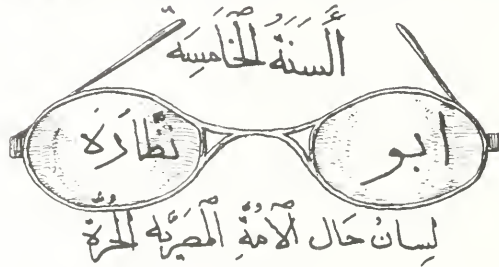 أَلسَنَةُ الخَامِسَه
ابو نظارَه
لِسانُ حَال الأُمةِ المَصريَّه الحُرة